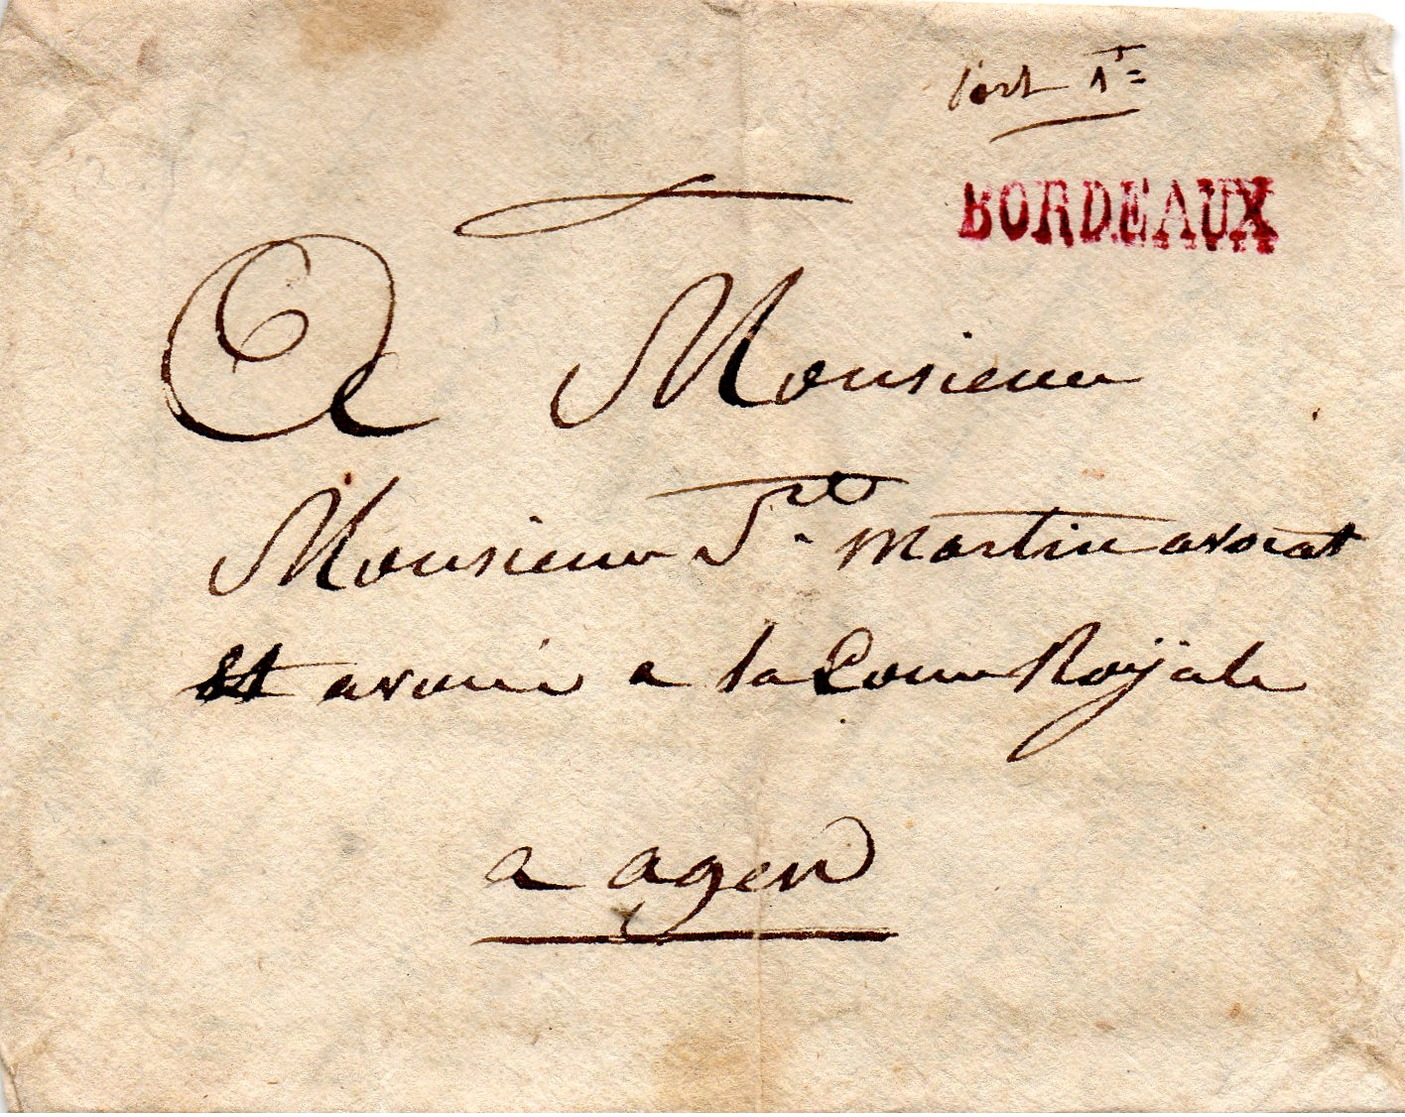 Port 1#=
BORDEAUX
A Monsieur
Monsieur St. martin avocat
Et avoué a la Cour Royale
a agen